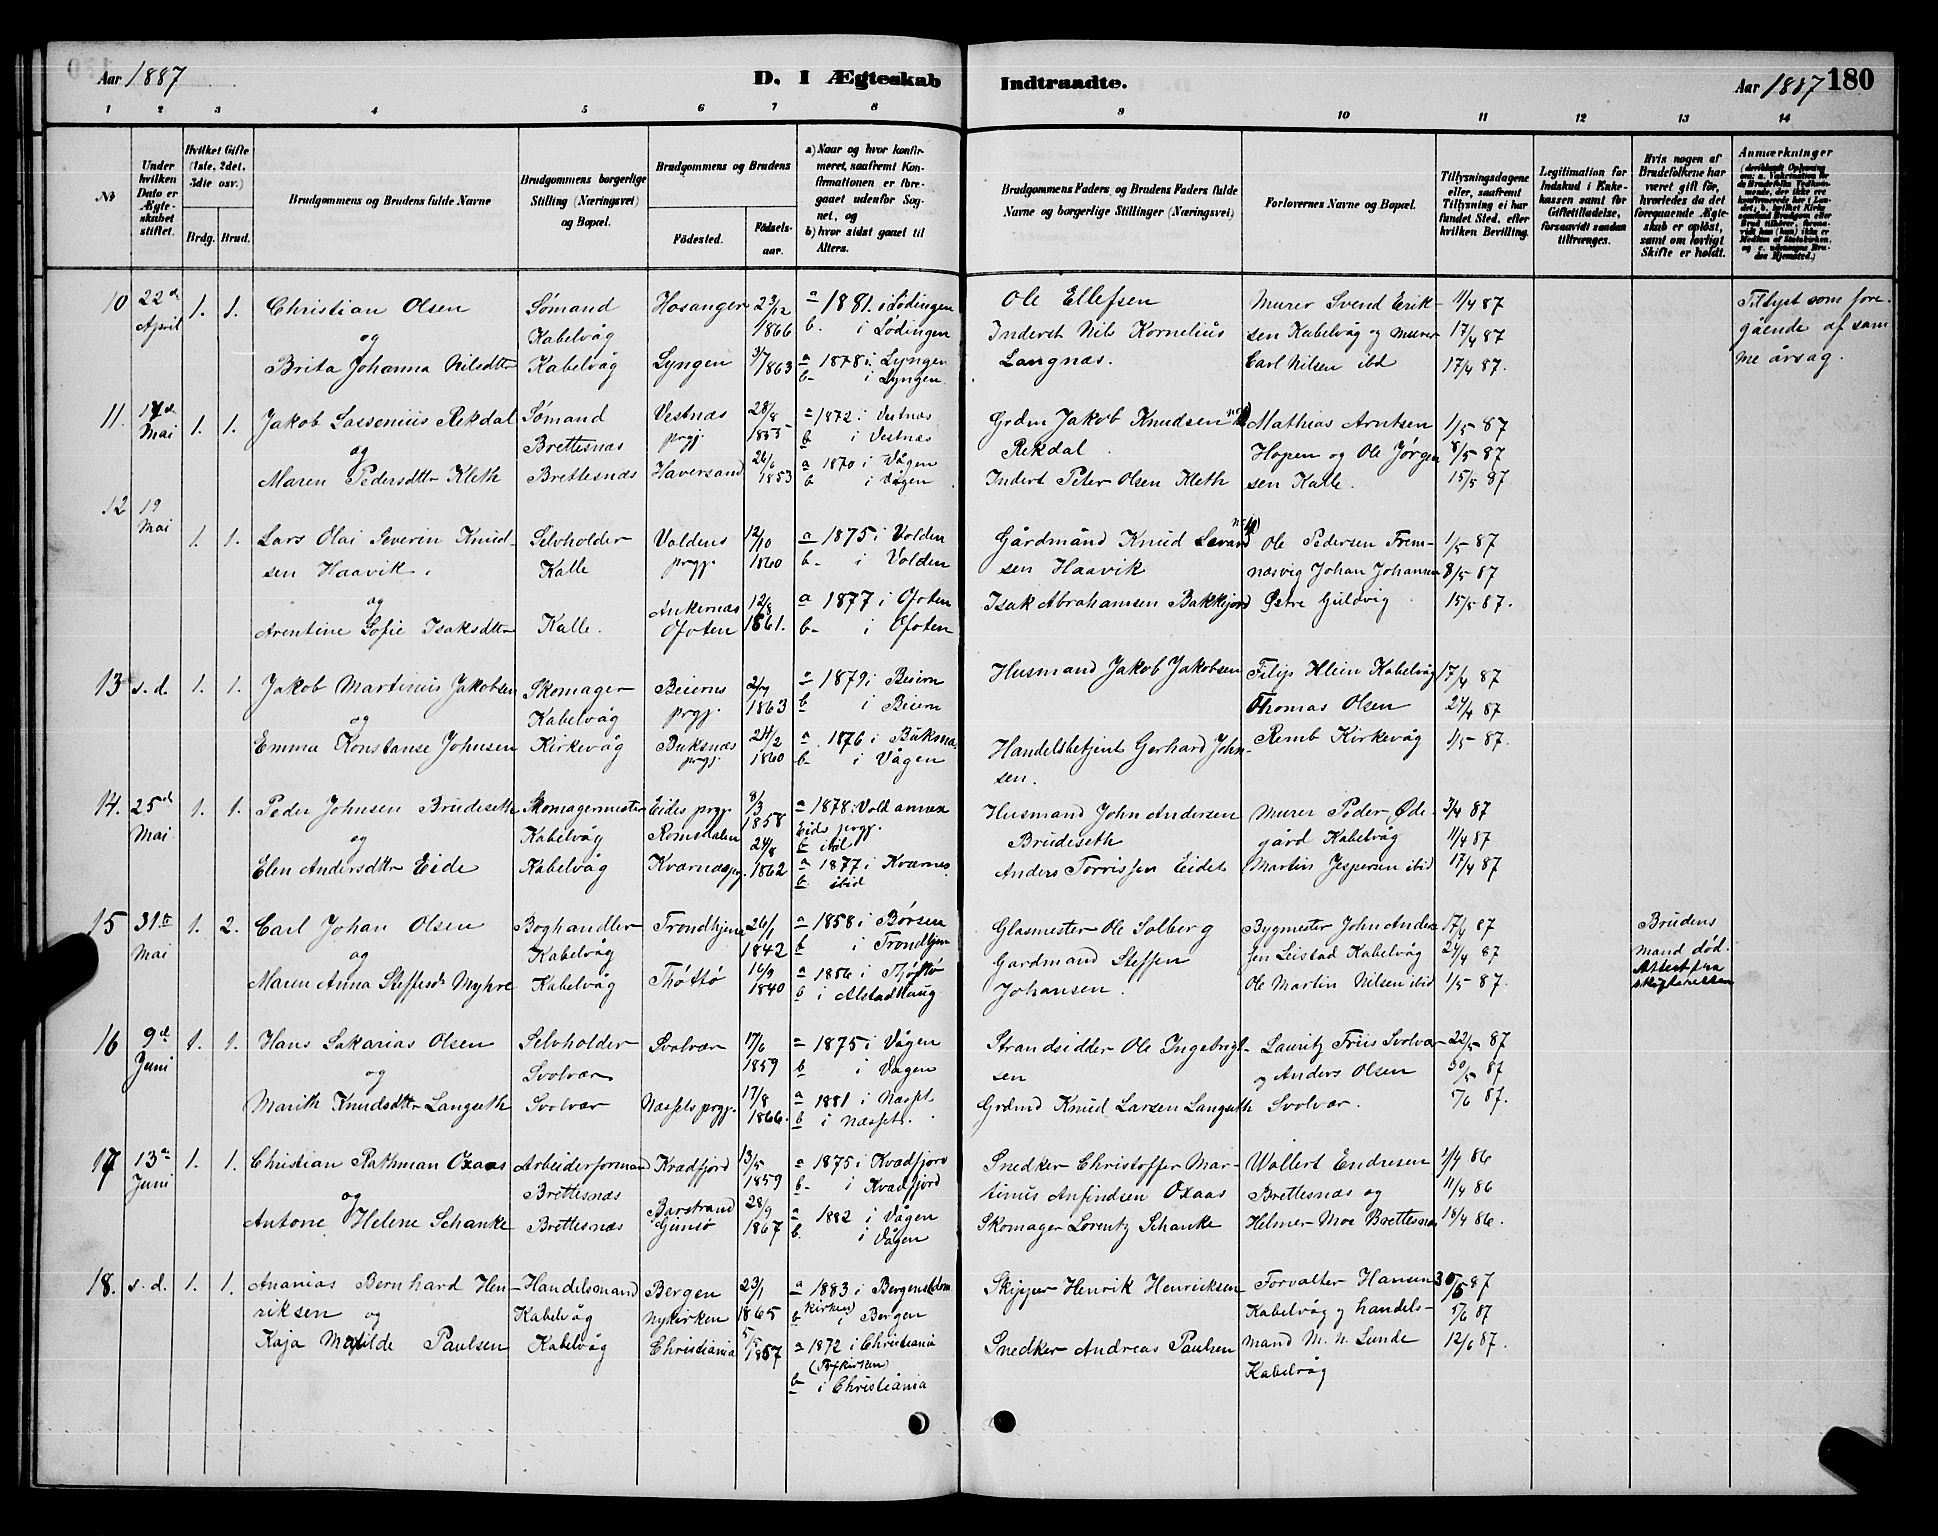 Aar 1887 D. I Ægteskab Indtraadte. Aar 1887 180
1 2 3 4 5 6 7 8 9 10 11 12 13 14
No
Under hvilken Dato er Ægteskabet stiftet.
Hvilket Gifte (1ste, 2det, 3die osv.)
Brdg. Brud.
Brudgommens og Brudens fulde Navne
Brudgommens borgerlige Stilling (Næringsvei) og Bopæl.
Brudgommens og Brudens
Fødested.
Fødselsaar.
a) Naar og hvor konfirmeret, saafremt Konfirmationen er foregaaet udenfor Sognet, og
b) hvor sidst gaaet til Alters.
Brudgommens Faders og Brudens Faders fulde Navne og borgerlige Stillinger (Næringsvei)
Forlovernes Navne og Bopæl.
Tillysningsdagene eller, saafremt Tillysning ei har fundet Sted, efter hvilken Bevilling.
Legitimation for Indskud i Enkekassen samt for Giftetilladelse, forsaavidt saadan tiltrænges.
Hvis nogen af Brudefolkene har været gift før, hvorledes da det foregaaende Ægteskab er opløst, samt om lovligt Skifte er holdt.
Anmærkninger
10 22de 1. 1. Christian Olsen Sømand Hosanger 23/12 a 1881 i Lødingen Ole Ellefsen Murer Svend Erik- 11/4 87 Tillyst som fore-
April og Kabelvåg 1866 b. i Lødingen Inderst Nils Kornelius sen Kabelvåg og murer 17/4 87 gående af sam
Brita Johanna Nilsdtr Kabelvåg Lyngen 3/7 1863 a 1878 i Lyngen Langnæs. Carl Nilsen ibd 17/4 87. me årsag.
b- i Lyngen
11. 17de 1. 1. Jakob Lassenius Rekdal Sømand Vestnæs 28/8 a 1872 i Vestnæs Grdm Jakob Knudsen Mathias Arntsen 1/5 87
Mai og Brettesnæs prgj. 1855 b i Vestnæs Rekdal Hopen og Ole Jørgen 8/5 87
Maren Pedersdtr Kleth Brettesnæs Haversand 26/6 1853 a 1870 i Vågen Inderst Peter Olsen Kleth sen Kalle. 15/5 87.
b i Vågen
12 19
Mai 1. 1. Lars Olai Severin Knud- Selvholder Voldens 12/10 a 1875 i Volden Gårdmand Knud Ole Pedersen Frem- 1/5 87
sen Haavik. Kalle prgj. 1860 b- i Volden sen Haavik næsvig Johan Johansen 8/5 87
og Ankernæs 12/8 a 1877 i Ofoten Isak Abrahamsen Bakkejord Østre Gulvig 15/5 87.
Arentine Sofie Isaksdtr Kalle. Ofoten 1861. b- i Ofoten
13 s.d. 1. 1. Jakob Martinus Jakobsen Skomager Beierns 2/7 a 1879 i Beiern Husmand Jakob Jakobsen Filip Klein Kabelvåg 17/4 87
og Kabelvåg prgj. 1863 b i Beiern Thomas Olsen 24/4 87
Emma Konstanse Johnsen Kirkevåg Buksnæs 24/2 a 1876 i Buksnæs Handelsbetjent Gerhard John- Remb Kirkevåg 1/5 87.
prgj. 1860 b- i Vågen sen.
14. 25de 1. 1. Peder Johnsen Brudeseth Skomagermester Eides prgj. 8/3 a 1878 i Vold annex Husmand John Andersen Murer Peder Øde- 3/4 87
Mai og Kabelvåg Romsdalen 1858 Eids prgj. Brudeseth gård Kabelvåg 11/4 87
24/8 b ibd
Elen Andersdtr Eide Kabelvåg Kvernæs prgj. 1862 a 1877 i Kværnes Anders Torrissen Eidet Martin Jespersen ibid 17/4 87
b ibid
15 31te 1. 2. Carl Johan Olsen Boghandler Trondhjem 26/1 a 1858 i Børsen Glasmester Ole Solberg Bygmester John Ander 17/4 87 Brudens
Mai og Kabelvåg 1842 b i Trondhjem Gardmand Steffen sen Leistad Kabelvåg 24/4 87 mand død.
Maren Anna Steffensd Myhre Kabelvåg Thøttø 16/9 a 1856 i Thøttø Johansen. Ole Martin Nilsen ibid 1/5 87. Attest fra
1840 b i Alstadhaug skifteretten
16 9de 1. 1. Hans Sakarias Olsen Selvholder Svolvær 17/6 a 1875 i Vågen Strandsidder Ole Ingebrigt- Lauritz Friis Svolvær 22/5 87
Juni og Svolvær 1859 b i Vågen sen og Anders Olsen 30/5 87
Marith Knudsdtr Langseth Svolvær Næssets prgj. 17/8 a 1881 i Næsset Grdmd Knud Larsen Langseth Svolvær. 5/6 87.
1866. b i Næsset.
17 13de 1. 1. Christian Rathman Oxaas Arbeiderformand Kvædfjord 13/5 a 1875 i Kvædfjord Snedker Christoffer Mar- Wollert Endresen 1/4 86
Juni og Brettesnæs 1859 b- i Kvædfjord tinus Anfindsen Oxaas Brettesnæs og 11/4 86
Antone Helene Schanke Brettesnæs Barstrand Gimsø 28/9 1867 a 1882 i Vågen Skomager Lorentz Schanke Helmer Moe Brettesnæs 18/4 86.
b. i Vågen
18. s.d. 1. 1. Ananias Bernhard Hen- Handelsmand Bergen 23/1 a 1883 i Bergens (dom Skipper Henrik Henriksen Forvalter Hansen 30/5 87
riksen og Kabelvåg Nykirken 1865 kirken) b i Bergen Kabelvåg og handels- 5/6 87
Kaja Matilde Paulsen Kabelvåg Christiania 5/5 1857 a 1872 i Christiania Snedker Andreas Paulsen mand M. N. Lunde 12/6 87.
b i Christiania Kabelvåg